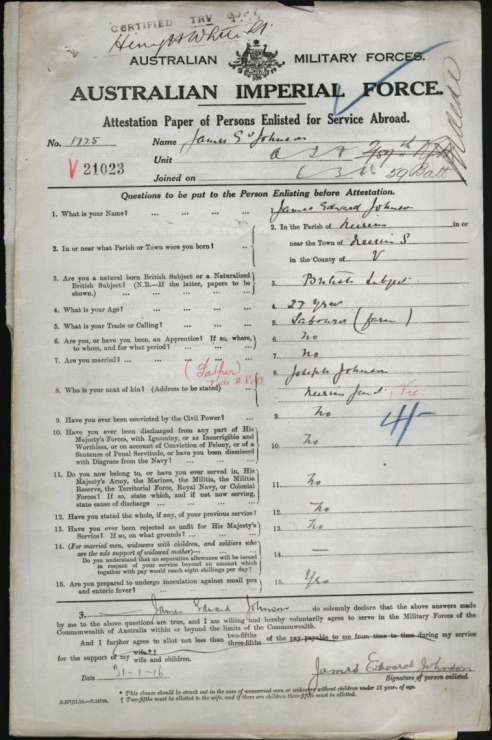 CERTIFIED TRV
Henry H White Lt
AUSTRALIAN MILITARY FORCES.
AUSTRALIAN IMPERIAL FORCE.
Attestation Paper of Persons Enlisted for Service Abroad.
No. 1825 Name James E Johnson
V 21023 Unit 59 Batt
Joined on 6 3 16
Questions to be put to the Person Enlisting before Attestation.
1. What is your Name? ... ... ... James Edward Johnson
2. In or near what Parish or Town were you born? .. 2. In the Parish of in or
near the Town of
in the County of V
3. Are you a natural born British Subject or a Naturalized
British Subject? (N.B.—If the latter, papers to be
shown.) ... ... ... 3. British Subject
4. What is your Age? ... ... ... 4. 27 years
5. What is your Trade or Calling? ... ... 5. Labourer (farm)
6. Are you, or have you been, an Apprentice? If so, where,
to whom, and for what period? ... ... 6. No
7. Are you married? ... ... ... 7. No
(Father)
8. Who is your next of kin? (Address to be stated) 8. Joseph Johnson
Vic.
9. Have you ever been convicted by the Civil Power? ... 9. No
10. Have you ever been discharged from any part of His
Majesty's Forces, with Ignominy, or as Incorrigible and
Worthless, or on account of Conviction of Felony, or of a
Sentence of Penal Servitude, or have you been dismissed
with Disgrace from the Navy? ... ... 10. No
11. Do you now belong to, or have you ever served in, His
Majesty's Army, the Marines, the Militia, the Militia
Reserve, the Territorial Force, Royal Navy, or Colonial
Forces? If so, state which, and if not now serving,
state cause of discharge ... ... 11. No
12. Have you stated the whole, if any, of your previous service? 12. No
13. Have you ever been rejected as unfit for His Majesty's
Service? If so, on what grounds? ... ... 13. No
14. (For married men, widowers with children, and soldiers who
are the sole support of widowed mother)—
Do you understand that no separation allowance will be issued
in respect of your service beyond an amount which
together with pay would reach eight shillings per day? 14. —
15. Are you prepared to undergo inoculation against small pox
and enteric fever? ... ... ... 15. Yes
I, James Edward Johnson do solemnly declare that the above answers made
by me to the above questions are true, and I am willing and hereby voluntarily agree to serve in the Military Forces of the
Commonwealth of Australia within or beyond the limits of the Commonwealth.
And I further agree to allot not less than two-fifths three-fifths of the pay payable to me from time to time during my service
for the support of my wife*† wife and children.
Date 31-1-16 James Edward Johnson
Signature of person enlisted.
* This clause should be struck out in the case of unmarried men or widowers without children under 18 years of age.
† Two-fifths must be allotted to the wife, and if there are children three-fifths must be allotted.